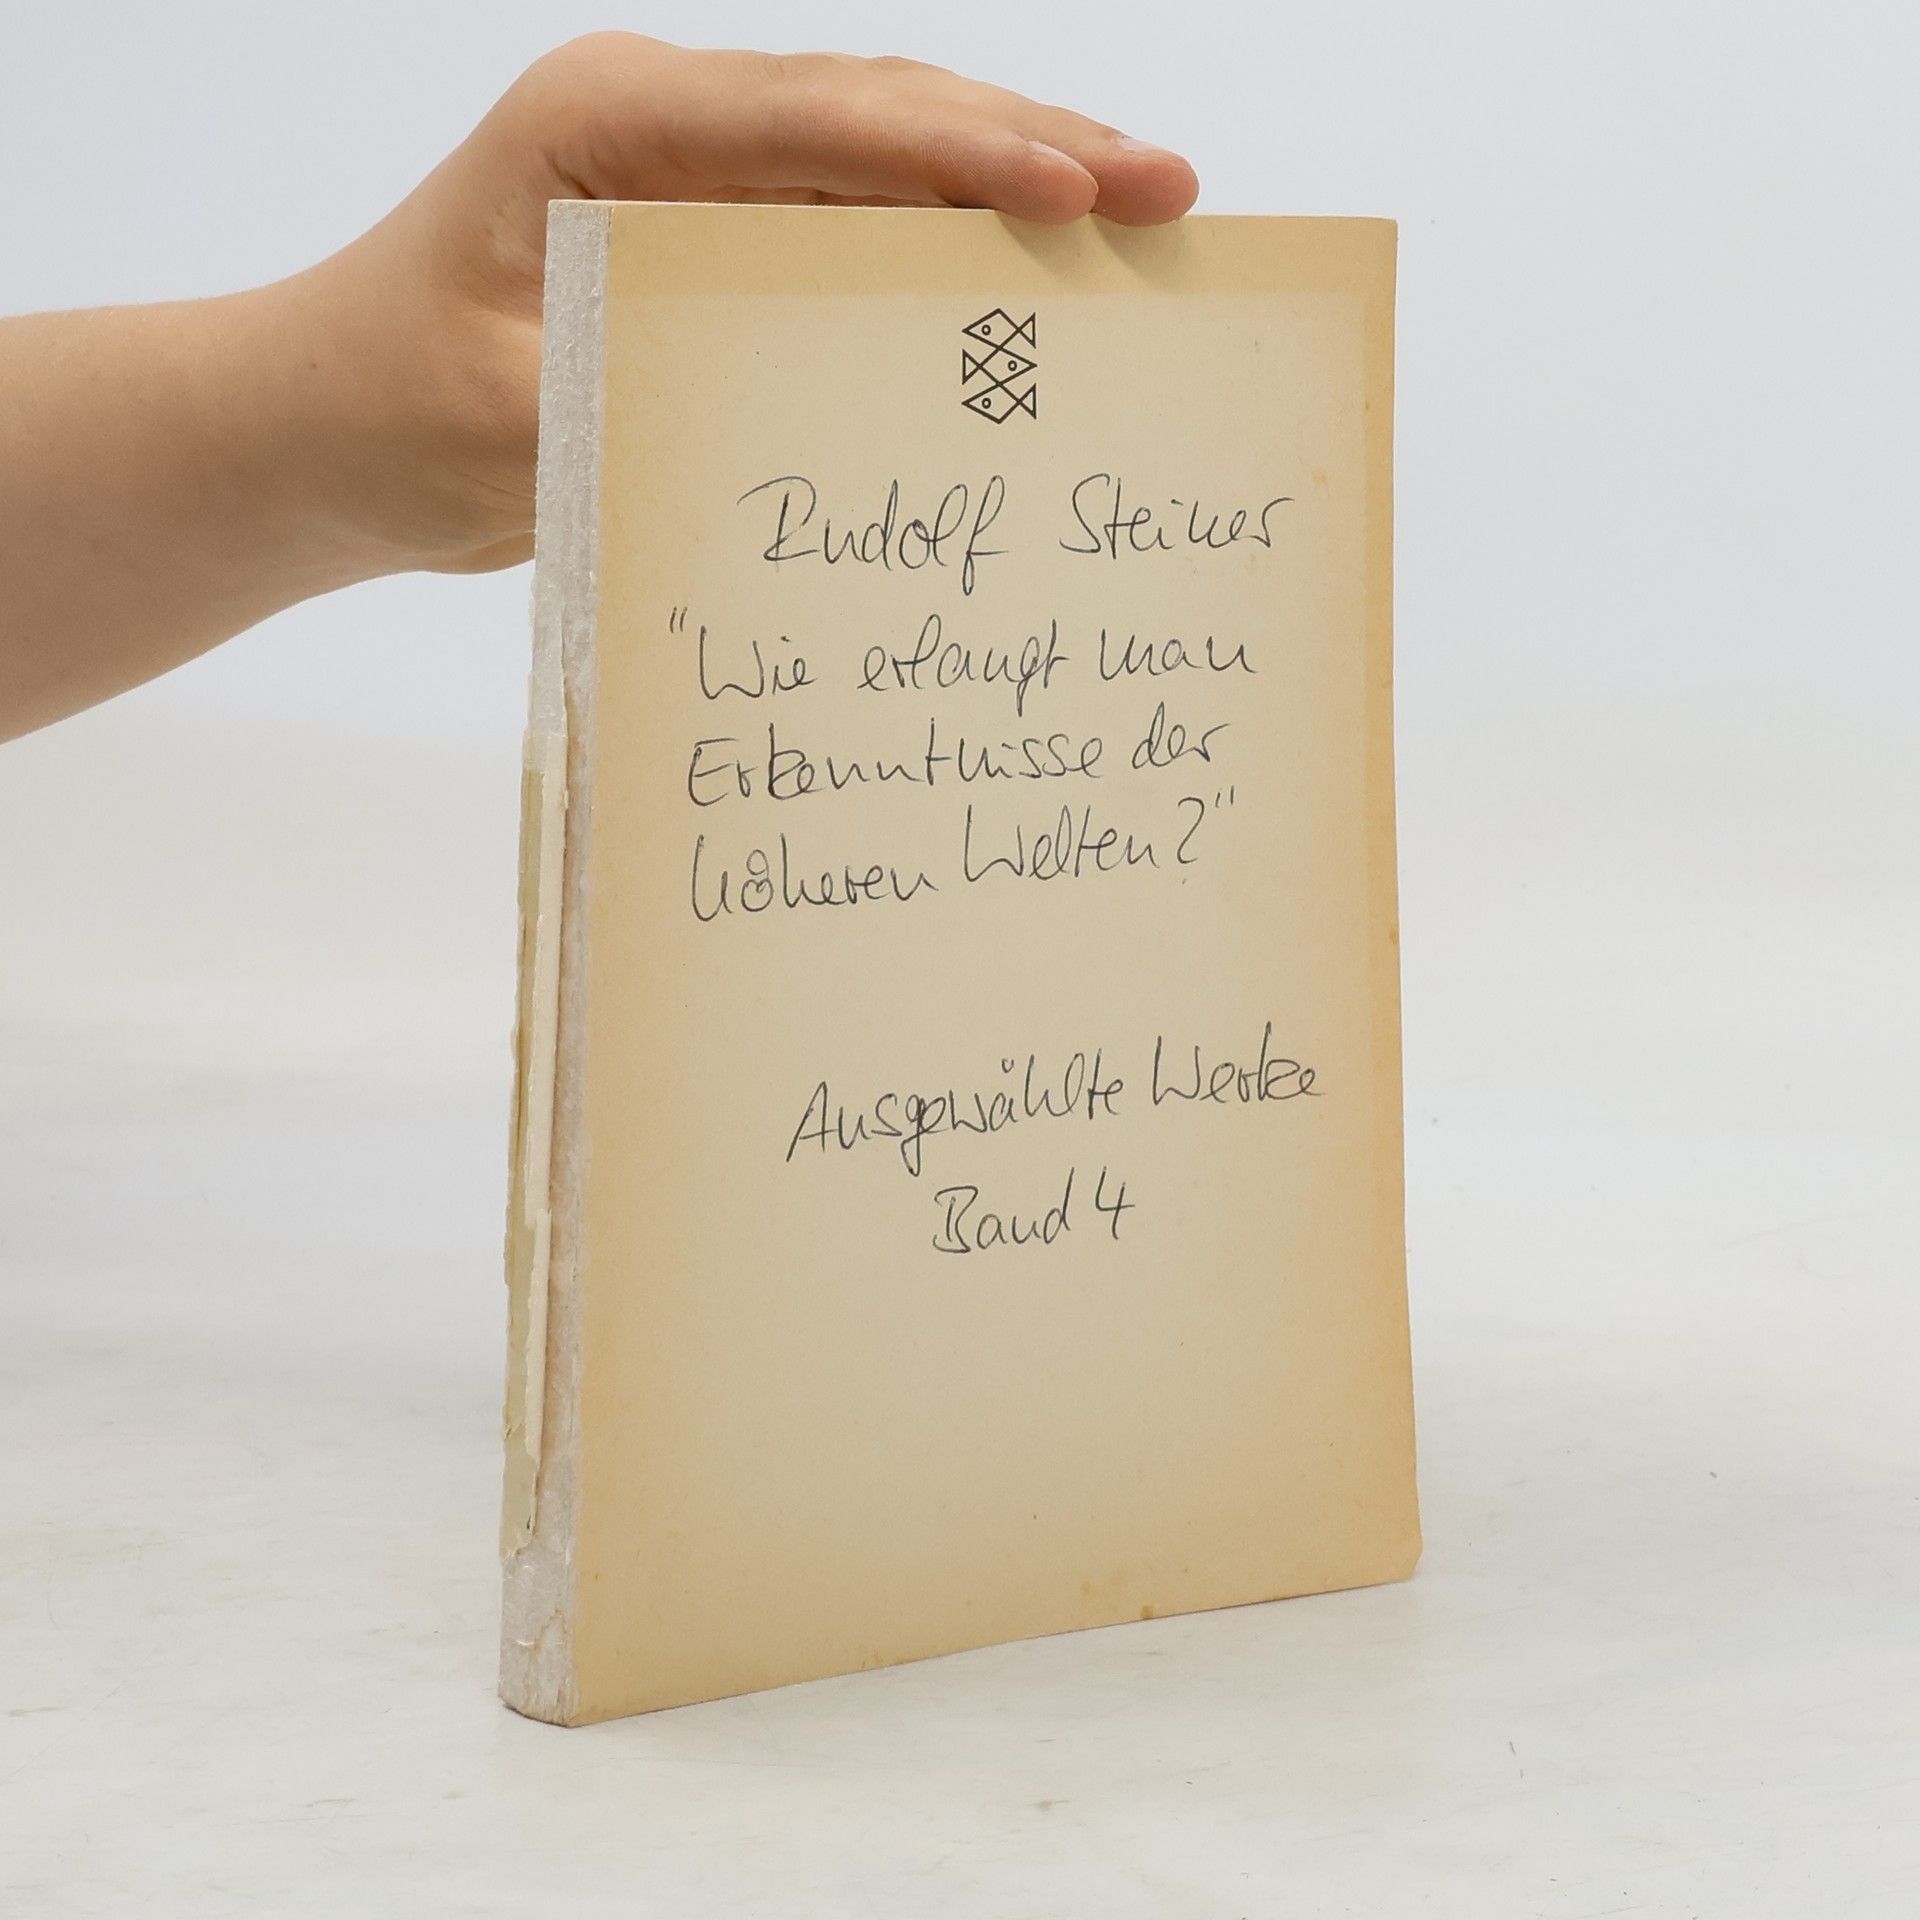 Rudolf Steiner
"Wie erlangt man
Erkenntnisse der
höheren Welten?"
Ausgewählte Werke
Band 4